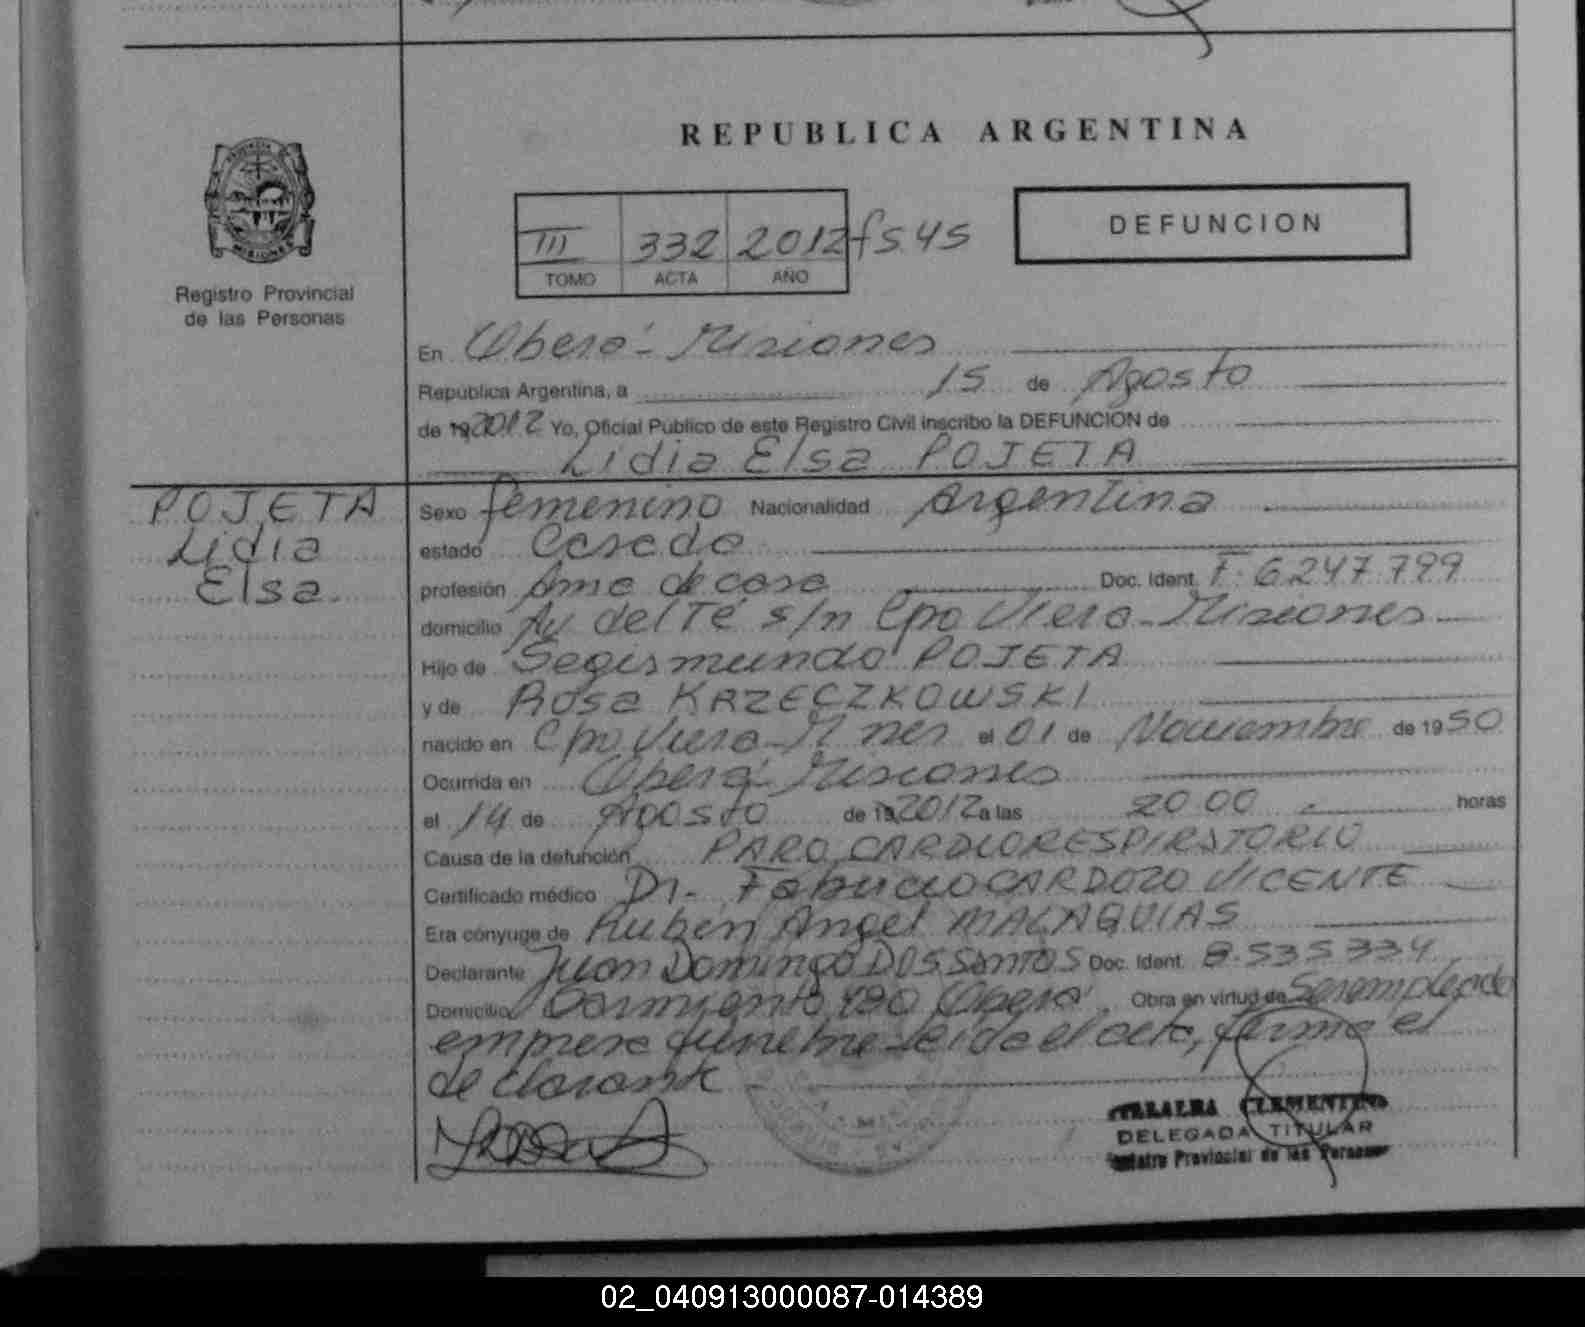 REPUBLICA ARGENTINA
PROVINCIA
MISIONES
Registro Provincial
de las Personas
III 332 2012 fs 45
TOMO ACTA AÑO
DEFUNCION
En Oberá - Misiones
República Argentina, a 15 de Agosto
de 19 2012 Yo, Oficial Público de este Registro Civil inscribo la DEFUNCION de
Lidia Elsa POJETA
POJETA
Lidia
Elsa
Sexo femenino Nacionalidad Argentina
estado Casada
profesión Ama de casa Doc. Ident. F. 6.247.799
domicilio Av del Té s/n Cpo Viera - Misiones
Hijo de Segismundo POJETA
y de Rosa KRZECZKOWSKI
nacido en Cpo Viera - Mnes el 01 de Noviembre de 1950
Ocurrida en Oberá - Misiones
el 14 de Agosto de 19 2012 a las 20 00 horas
Causa de la defunción PARO CARDIORESPIRATORIO
Certificado médico Dr. Fabricio CARDOZO VICENTE
Era cónyuge de Rubén Angel MALAQUIAS
Declarante Juan Domingo DOS SANTOS Doc. Ident. 8.535.334
Domicilio Sarmiento Oberá Obra en virtud de Ser empleado
empresa fúnebre leida el acta, firma el
declarante
CLEMENTINA
DELEGADA TITULAR
Provincial de las Personas
02_040913000087-014389